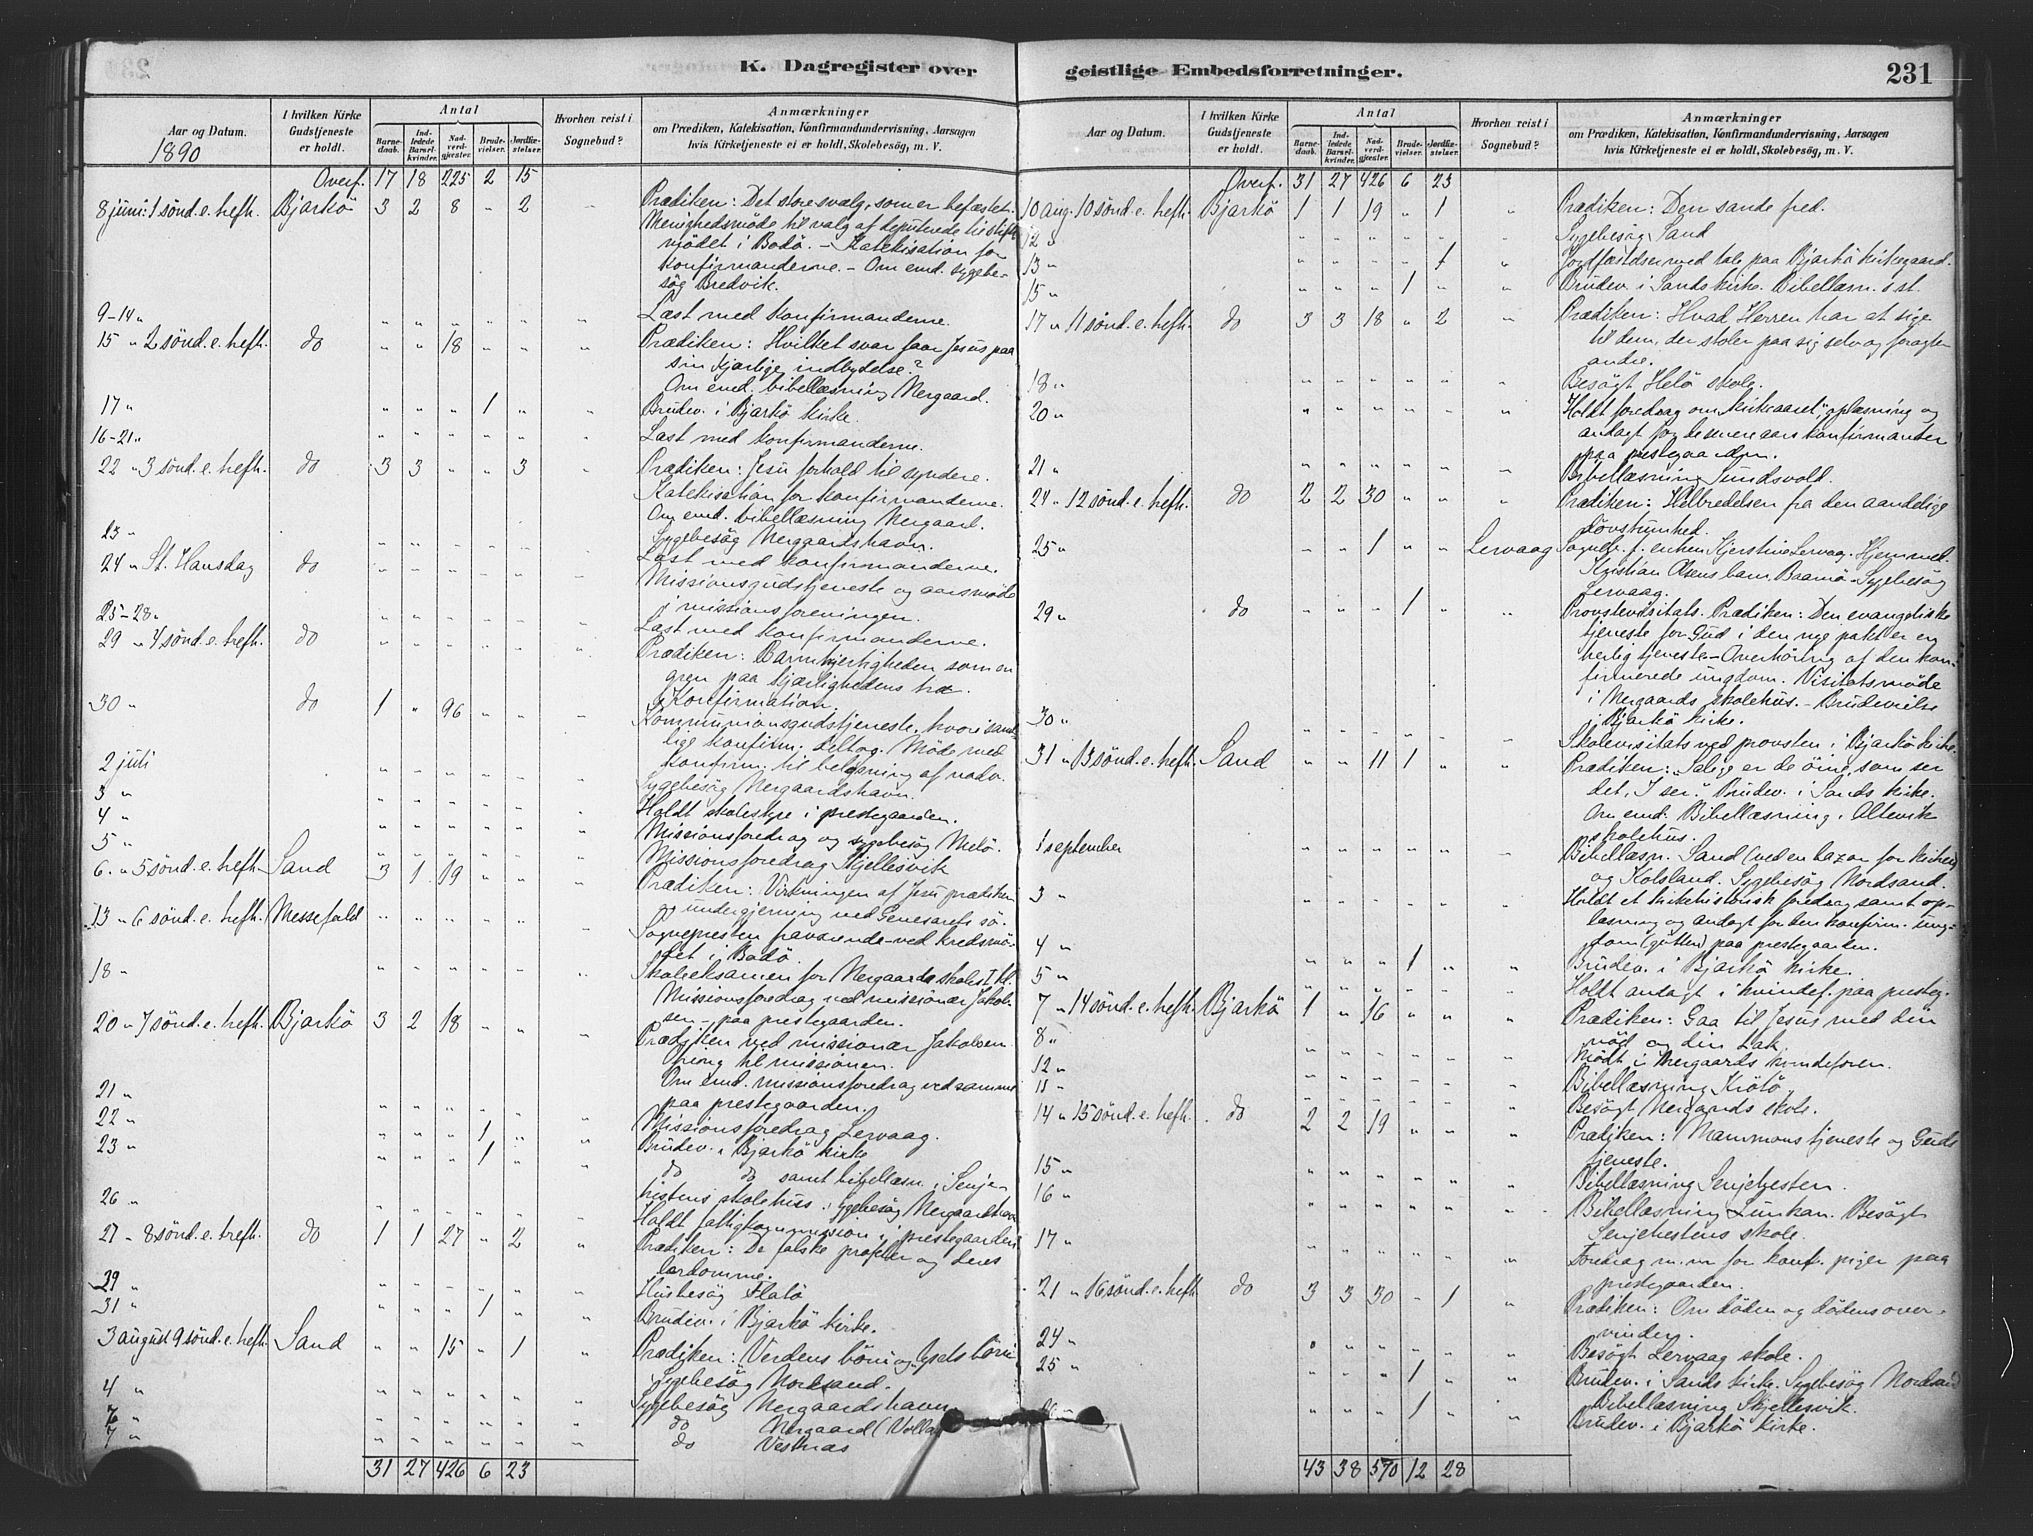 K. Dagregister over geistlige Embedsforretninger. 231
Aar og Datum. 1890
I hvilken Kirke Gudstjeneste er holdt.
Antal
Barnedaab. Indledede Barselkvinder. Nadverdgjester. Brudevielser. Jordfæstelser.
Hvorhen reist i Sognebud?
Anmærkninger
om Prædiken, Katekisation, Konfirmandundervisning, Aarsagen
hvis Kirketjeneste ei er holdt, Skolebesøg, m. V.
Overf. 17 18 225 2 15
8 juni: 1 sönd. e. trefh. Bjarkö 3 2 8 " 2 Prædiken: Det store svalg, som er befæstet.
Menighedsmöde til valg af deputerede til stifts
mödet i Bodö. - Katekisation for
konfirmanderne. - Om emd. sygebe-
søg Bredvik.
9-14 " Læst med konfirmanderne.
15 " 2 sönd. e. trefh. do " " 18 " " Prædiken: Hvilket svar faar Jesus paa
sin kjærlige indbydelse?
Om emd. bibellæsning Nergaard.
17 " " " " 1 " " Brudev. i Bjarkö kirke.
16-21 " Læst med konfirmanderne.
22 " 3 sönd. e. trefh. do 3 3 " " 3 " Prædiken: Jesu forhold til syndere.
Katekisation for konfirmanderne.
Om emd. bibellæsning Nergaard.
23 " Sygebesög Nergaardshavn.
Læst med konfirmanderne.
24 " St. Hansdag do Missionsgudstjeneste og aarsmöde
i missionsforeningen.
25-28 " Læst med konfirmanderne.
29 " 4 sönd. e. trefh. do Prædiken: Barmhjertigheden som en
gren paa kjærlighedens træ.
Konfirmation.
30 " do 1 " 96 " " " Kommunionsgudstjeneste, hvori samt-
lige konfirm. deltog. Möde med
konfirm. til
2 juli Sygebesög Nergaardshavn.
3 " Holdt skolestyre i prestegaarden.
4 " Missionsforedrag og sygebesög Melö.
5 " Missionsforedrag Skjellesvik
6. " 5 sönd. e. trefh. Sand 3 1 19 " " " Prædiken: Virkningen af Jesu prædiken
og undergjerning ved Genesarets sö.
13 " 6 sönd. e. trefh. Messefald Sognepresten fraværende ved kredsmö-
det i Bodö.
18 " Skoleeksamen for Nergaards skole
Missionsforedrag ved missionær Jakob-
sen - paa prestegaarden.
20 " 7 sönd. e. trefh. Bjarkö 3 2 18 " " " Prædiken ved missionær Jakobsen
Ofring til missionen.
Om emd. missionsforedrag ved samme
paa prestegaarden.
21 " Missionsforedrag Lervaag.
22 " 1 Brudev. i Bjarkö kirke
23 " 1 do do samt bibellæsn. i Senje-
hestens skolehus. Sygebesög Nergaardshavn
26 " Holdt fattigkommission i prestegaarden
27 " 8 sönd. e. trefh. do 1 1 27 " 2 " Prædiken: De falske profeter og deres
lærdomme.
29 " Husbesög Flatö
31 " 1 Brudev. i Bjarkö kirke.
3 august 9 sönd. e. trefh. Sand " " 15 " 1 " Prædiken: Verdens börn og lysets börn
Sygebesög Nordsand.
4 " Sygebesög Nergaardshavn
" do Nergaard
7 " do Vestnæs
31 27 426 6 23
Aar og Datum.
I hvilken Kirke Gudstjeneste er holdt.
Antal
Barnedaab. Indledede Barselkvinder. Nadverdgjester. Brudevielser. Jordfæstelser.
Hvorhen reist i Sognebud?
Anmærkninger
om Prædiken, Katekisation, Konfirmandundervisning, Aarsagen
hvis Kirketjeneste ei er holdt, Skolebesøg, m. V.
Overf. 31 27 426 6 23
10 Aug. 10 sönd. e. trefh. Bjarkö 1 1 19 " 1 " Prædiken: Den sande fred.
12 " Sygebesög Sand
13 " 1 Jordfæstelse med tale paa Bjarkö kirkegaard.
15 " 1 Brudev. i Sands kirke. Bibellæsn. s. st.
17 " 11 sönd. e. trefh. do 3 3 18 " 2 " Prædiken: Hvad Herren har at sige
til dem, der stoler paa sig selv og foragter
andre.
18 " Besögt Helö skole.
20 " Holdt foredrag om "kirkeaaret", oplæsning og
andagt for de senere aars konfirmanter
paa prestegaarden.
21 " Bibellæsning Sundsvold.
24 " 12 sönd. e. trefh. do 2 2 30 " " " Prædiken: Helbredelsen fra den aandelige
dövstumhed.
25 " " " 1 " " Lervaag Sogneb. f. enken Kjerstine Lervaag. Hjemmed.
Kristian Olsens barn, Sygebesög
Lervaag.
29 " do 1 Provstevisitats. Prædiken: Den evangeliske
tjeneste for Gud i den nye pakt er en
herlig tjeneste - Overhöring af den kon-
firmerede ungdom. Visitatsmöde
i Nergaards skolehus. - Brudevielse
i Bjarkö kirke.
30 " Skolevisitats ved provsten i Bjarkö kirke.
31 " 13 sönd. e. trefh. Sand " " 11 1 " " Prædiken: Salige er de öine, som ser
det, I ser." Brudev. i Sands kirke.
Om emd. Bibellæsning i Altevik
skolehus.
1 september Bibellæsn. Sand (ved en bazar for kirken)
og Kolsland. Sygebesög Nordsand.
3 " Holdt et kirkehistorisk foredrag samt op-
læsning og andagt for den konfirm. ung-
dom (gutter) paa prestegaarden.
4 " 1 Brudev. i Bjarkö kirke.
5 " Holdt andagt i kvindef. paa presteg.
7 " 14 sönd. e. trefh. Bjarkö 1 " 16 " " " Prædiken: Gaa til Jesus med din
nöd og din tak.
8 " Mödt i Nergaards kvindeforen.
12 " Bibellæsning Krötö.
11 " Besögt Nergaards skole.
14 " 15 sönd. e. trefh. do 2 2 19 " " " Prædiken: Mammons tjeneste og Guds
tjeneste.
15 " Bibellæsning Senjehesten.
16 " Bibellæsning Besögt
Senjehestens skole.
17 " Foredrag m. m. for konfr. piger paa
prestegaarden.
21 " 16 sönd. e. trefh. do 3 3 30 " 1 " Prædiken: Om döden og dödens over-
vinder.
24 " Besögt Lervaag skole.
25 " 1 Brudev. i Sands kirke. Sygebesög Nordsand
Bibellæsning Skjellesvik.
1 Brudev. i Bjarkö kirke.
43 38 570 12 28